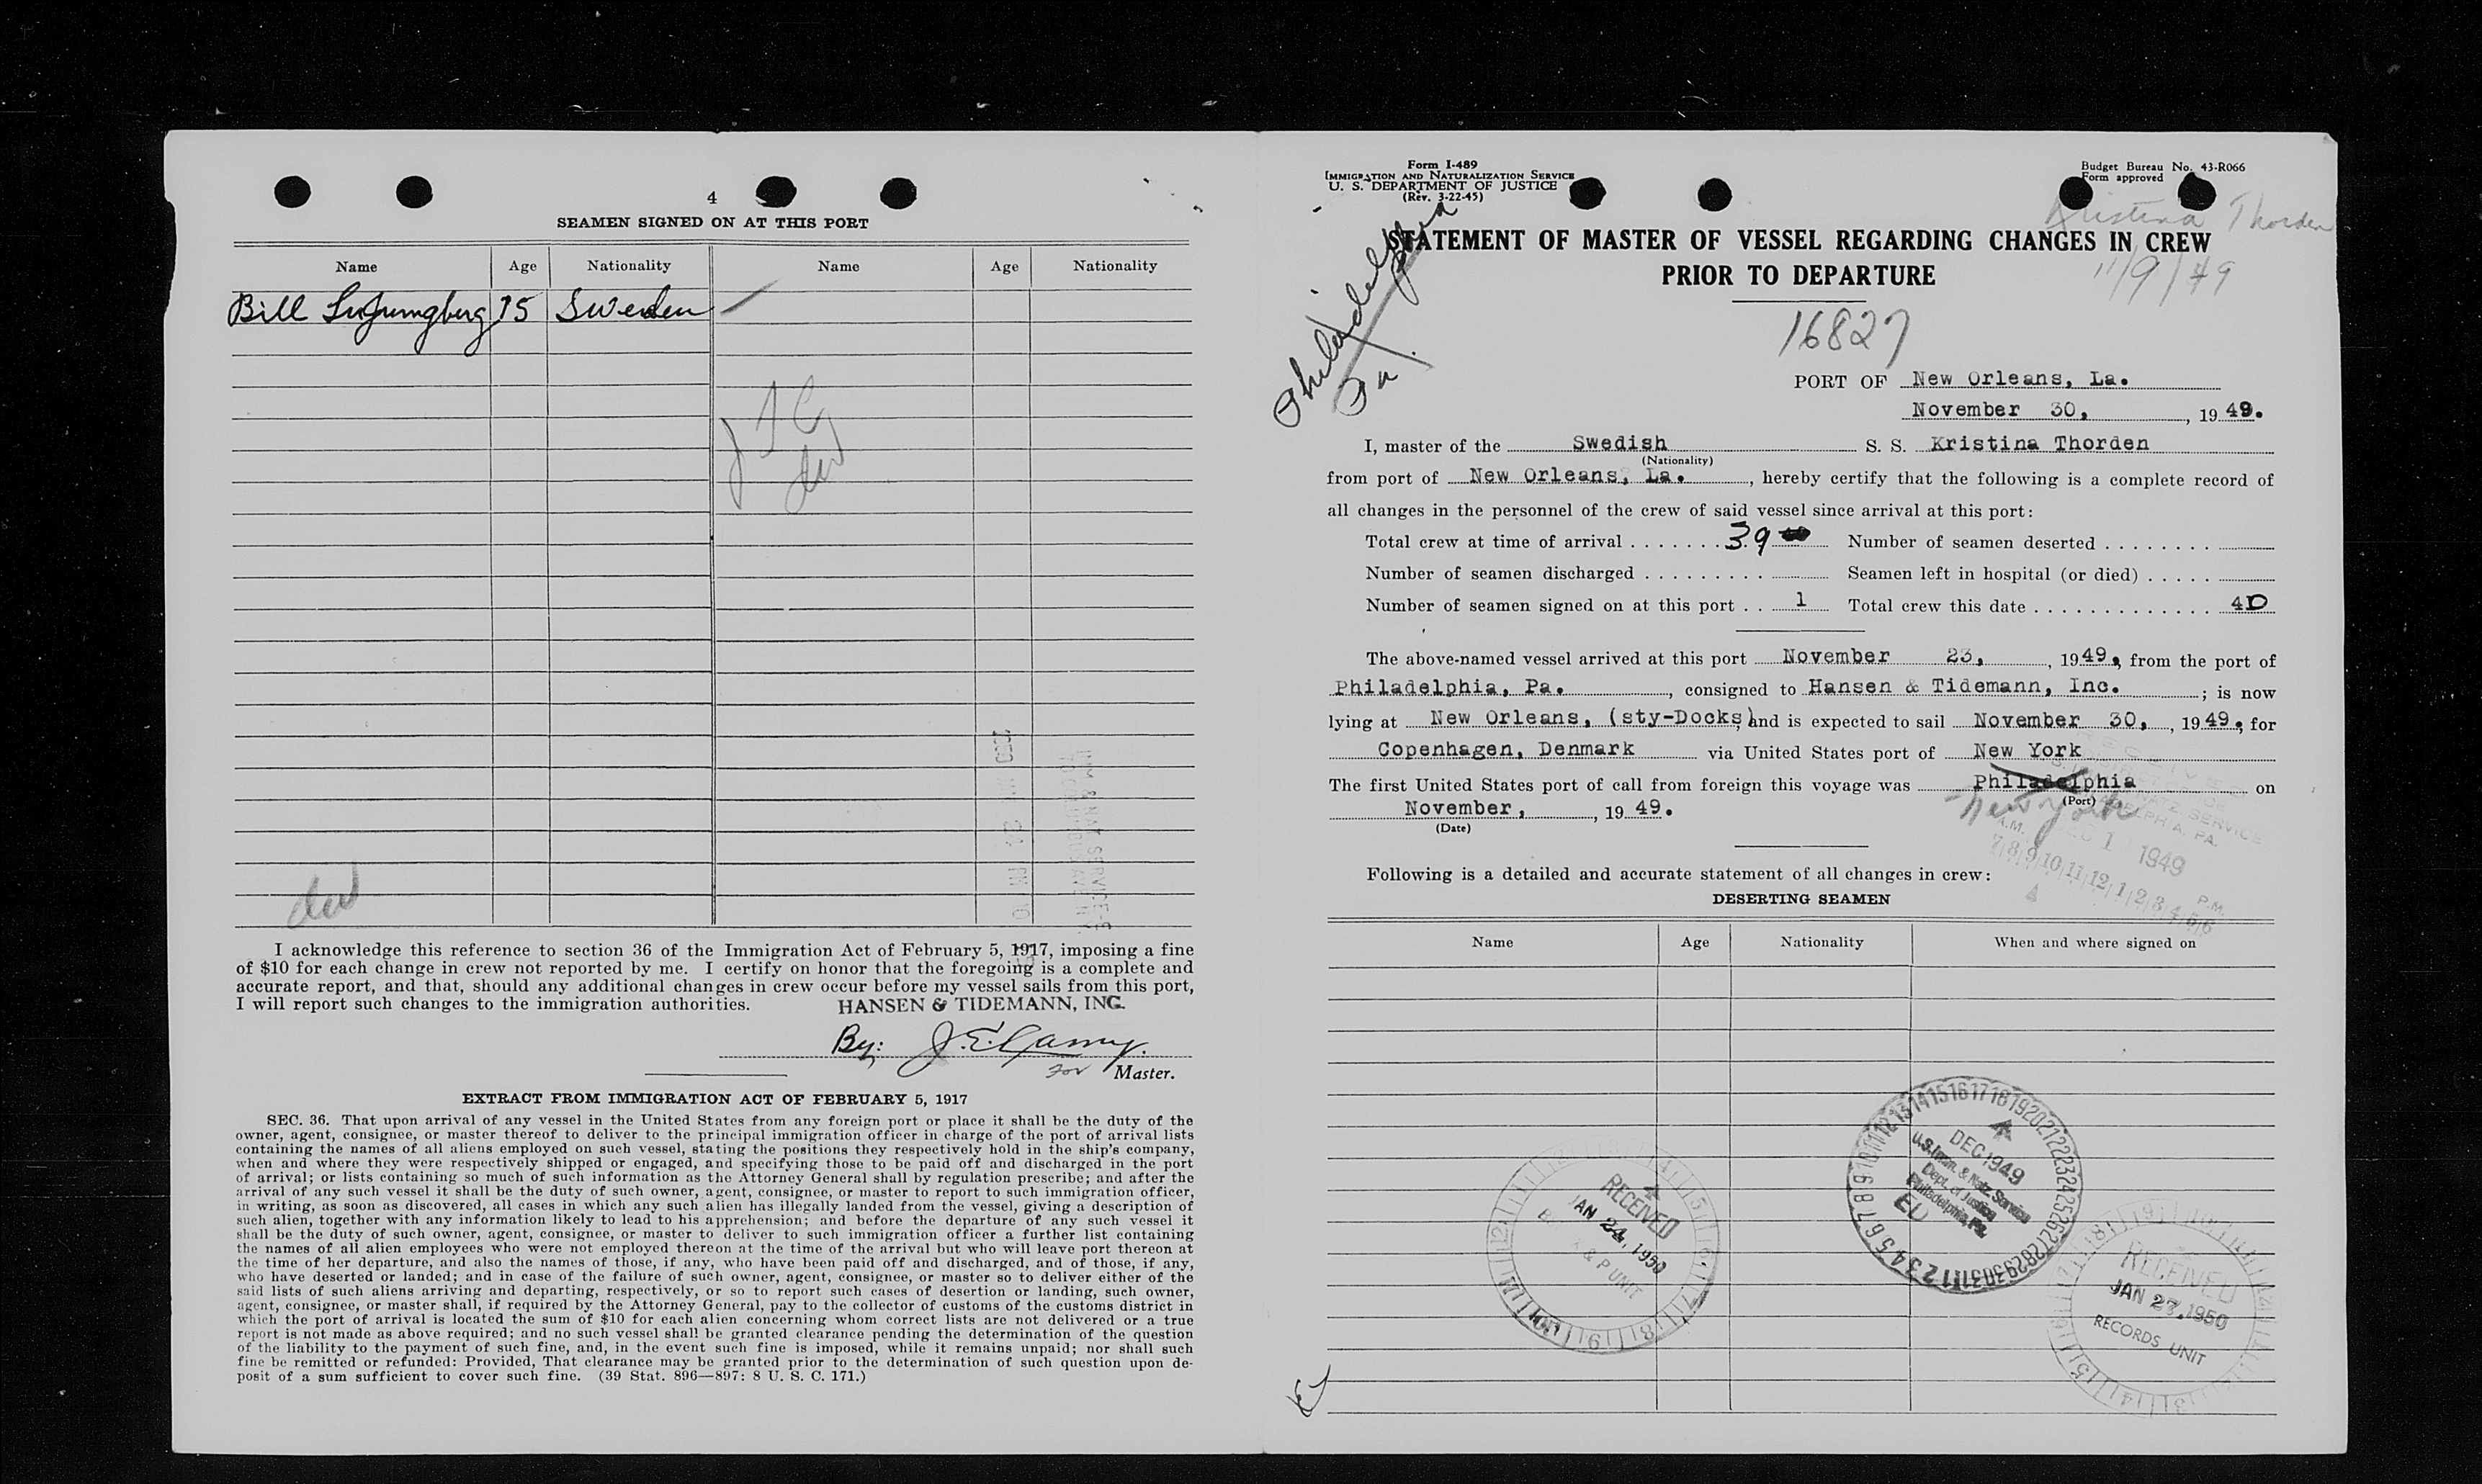 4
SEAMEN SIGNED ON AT THIS PORT
Name Age Nationality Name Age Nationality
Bill 15 Sweden
I acknowledge this reference to section 36 of the Immigration Act of February 5, 1917, imposing a fine
of $10 for each change in crew not reported by me. I certify on honor that the foregoing is a complete and
accurate report, and that, should any additional changes in crew occur before my vessel sails from this port,
I will report such changes to the immigration authorities.
HANSEN & TIDEMANN, INC.
By: J. E.
For Master.
EXTRACT FROM IMMIGRATION ACT OF FEBRUARY 5, 1917
SEC. 36. That upon arrival of any vessel in the United States from any foreign port or place it shall be the duty of the
owner, agent, consignee, or master thereof to deliver to the principal immigration officer in charge of the port of arrival lists
containing the names of all aliens employed on such vessel, stating the positions they respectively hold in the ship's company,
when and where they were respectively shipped or engaged, and specifying those to be paid off and discharged in the port
of arrival; or lists containing so much of such information as the Attorney General shall by regulation prescribe; and after the
arrival of any such vessel it shall be the duty of such owner, agent, consignee, or master to report to such immigration officer,
in writing, as soon as discovered, all cases in which any such alien has illegally landed from the vessel, giving a description of
such alien, together with any information likely to lead to his apprehension; and before the departure of any such vessel it
shall be the duty of such owner, agent, consignee, or master to deliver to such immigration officer a further list containing
the names of all alien employees who were not employed thereon at the time of the arrival but who will leave port thereon at
the time of her departure, and also the names of those, if any, who have been paid off and discharged, and of those, if any,
who have deserted or landed; and in case of the failure of such owner, agent, consignee, or master so to deliver either of the
said lists of such aliens arriving and departing, respectively, or so to report such cases of desertion or landing, such owner,
agent, consignee, or master shall, if required by the Attorney General, pay to the collector of customs of the customs district in
which the port of arrival is located the sum of $10 for each alien concerning whom correct lists are not delivered or a true
report is not made as above required; and no such vessel shall be granted clearance pending the determination of the question
of the liability to the payment of such fine, and, in the event such fine is imposed, while it remains unpaid; nor shall such
fine be remitted or refunded: Provided, That clearance may be granted prior to the determination of such question upon de-
posit of a sum sufficient to cover such fine. (39 Stat. 896—897: 8 U. S. C. 171.)
Form I-489
IMMIGRATION AND NATURALIZATION SERVICE
U. S. DEPARTMENT OF JUSTICE
(Rev. 3-22-45)
Budget Bureau No. 43-R066
Form approved
Kristina Thorden
11/9/49
Philadelphia
Pa.
STATEMENT OF MASTER OF VESSEL REGARDING CHANGES IN CREW
PRIOR TO DEPARTURE
16827
PORT OF New Orleans, La.
November 30, , 19 49.
I, master of the Swedish S. S. Kristina Thorden
(Nationality)
from port of New Orleans, La. , hereby certify that the following is a complete record of
all changes in the personnel of the crew of said vessel since arrival at this port:
Total crew at time of arrival 39 Number of seamen deserted
Number of seamen discharged Seamen left in hospital (or died)
Number of seamen signed on at this port 1 Total crew this date 40
The above-named vessel arrived at this port November 23, , 19 49, from the port of
Philadelphia, Pa. , consigned to Hansen & Tidemann, Inc. ; is now
lying at New Orleans, (sty-Docks) and is expected to sail November 30, , 19 49, for
Copenhagen, Denmark via United States port of New York
The first United States port of call from foreign this voyage was Philadelphia on
New York
(Port)
November, , 19 49.
(Date)
DEC 1 1949
A.M. 7 8 9 10 11 12 1 2 3 4 5 6 P.M.
Following is a detailed and accurate statement of all changes in crew:
DESERTING SEAMEN
Name Age Nationality When and where signed on
DEC 1949
U.S. Imm. & Natz. Service
Dept. of Justice
Philadelphia, Pa.
RECEIVED
JAN 24, 1950
& P UNIT
RECEIVED
JAN 27, 1950
RECORDS UNIT